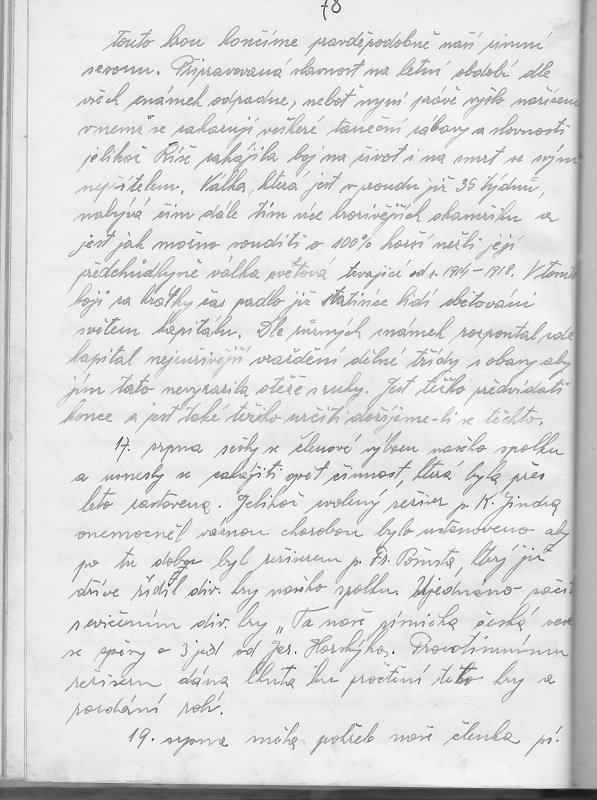 78
Touto hrou končíme pravděpodobně naší zimní
sezonu. Připravovaná slavnost na letní období dle
všech známek odpadne, neboť nyní právě vyšlo nařízení
v němž se zakazují veškeré taneční zábavy a slavnosti
jelikož Říše zahájila boj na život i na smrt se svým
nepřítelem. Válka, která jest v proudu již 35 týdnů,
nabývá čím dále tím více hrozivějších okamžiků a
jest jak možno souditi o 100% horší nežli její
předchůdkyně válka světová trvající od r. 1914-1918. V tomto
boji za krátký čas padlo již statisíce lidí obětován
světem kapitálu. Dle různých známek rozpoutal zde
kapitál nejzuřivější vraždění dělné třídy z obavy aby
jim tato nevyrazila otěže z ruky. Jest těžko předvídati
konce a jest také těžko určiti dožijeme-li se těchto.
17. srpna sešly se členové výboru našeho spolku
a usnesly se zahájiti opět činnost, která byla přes
léto zastavena. Jelikož zvolený režiser p. K. Jindra
onemocněl vážnou chorobou bylo ustanoveno aby
po tu dobu byl režiserem p. Fr. který již
dříve řídil div. hry našeho spolku. Ujednáno začíti
s cvičením div. hry „Ta naše písnička česká
se zpěvy o 3 jed. od Jar. Horského. Prozatímnímu
režiseru dána lhůta ku pročtení této hry a
rozdání rolí.
19. srpna měla pohřeb naše členka pí.